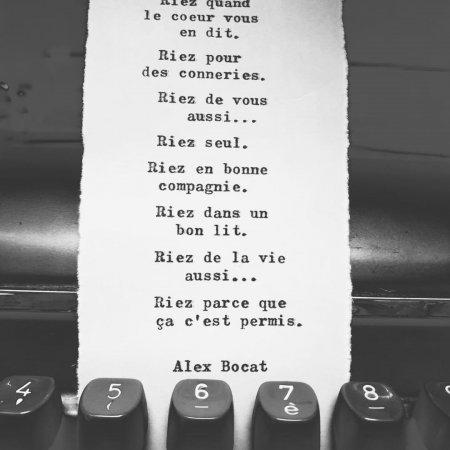 Riez quand
le coeur vous
en dit.
Riez pour
des conneries.
Riez de vous
aussi...
Riez seul.
Riez en bonne
compagnie.
Riez dans un
bon lit.
Riez de la vie
aussi...
Riez parce que
ça c'est permis.
Alex Bocat
4 5 6 7 8
' ( _ è _